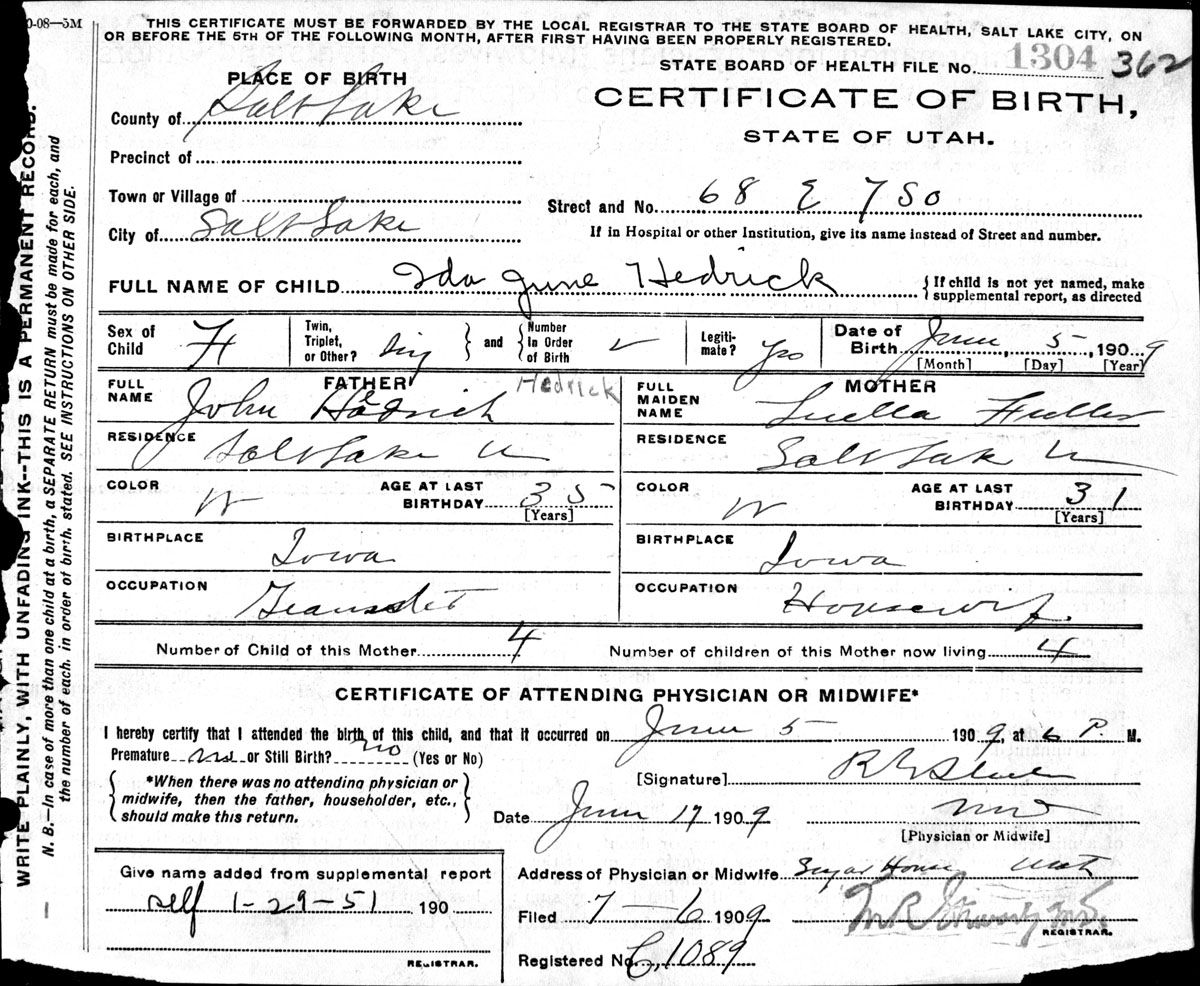 0-08—5M
THIS CERTIFICATE MUST BE FORWARDED BY THE LOCAL REGISTRAR TO THE STATE BOARD OF HEALTH, SALT LAKE CITY, ON
OR BEFORE THE 5TH OF THE FOLLOWING MONTH, AFTER FIRST HAVING BEEN PROPERLY REGISTERED.
STATE BOARD OF HEALTH FILE No. 1304 362
PLACE OF BIRTH
CERTIFICATE OF BIRTH,
STATE OF UTAH.
County of Salt Lake
Precinct of
Town or Village of
Street and No. 68 E 7 So
City of Salt Lake
If in Hospital or other Institution, give its name instead of Street and number.
FULL NAME OF CHILD Ida June Hedrick
{ If child is not yet named, make
supplemental report, as directed
Sex of Child F
Twin, Triplet, or Other? Sing } and { Number In Order of Birth
Legitimate? Yes
Date of Birth June, 5, 1909
[Month] [Day] [Year]
FATHER
FULL NAME John Hedrich Hedrick
MOTHER
FULL MAIDEN NAME Luella Fuller
RESIDENCE Salt Lake U
RESIDENCE Salt Lak U
COLOR W
AGE AT LAST BIRTHDAY 35
[Years]
COLOR W
AGE AT LAST BIRTHDAY 31
[Years]
BIRTHPLACE Iowa
BIRTHPLACE Iowa
OCCUPATION
OCCUPATION Housewif.
Number of Child of this Mother 4
Number of children of this Mother now living 4
CERTIFICATE OF ATTENDING PHYSICIAN OR MIDWIFE*
I hereby certify that I attended the birth of this child, and that it occurred on June 5 1909, at 6 P. M.
Premature or Still Birth? no (Yes or No)
{ *When there was no attending physician or
midwife, then the father, householder, etc.,
should make this return. }
[Signature]
Date June 17 1909
[Physician or Midwife]
Give name added from supplemental report
self 1-29-51 190
REGISTRAR.
Address of Physician or Midwife Sugar House Utah
Filed 7-6 1909
REGISTRAR.
Registered No. 1089
WRITE PLAINLY, WITH UNFADING INK--THIS IS A PERMANENT RECORD.
N. B.—In case of more than one child at a birth, a SEPARATE RETURN must be made for each, and
the number of each, in order of birth, stated. SEE INSTRUCTIONS ON OTHER SIDE.